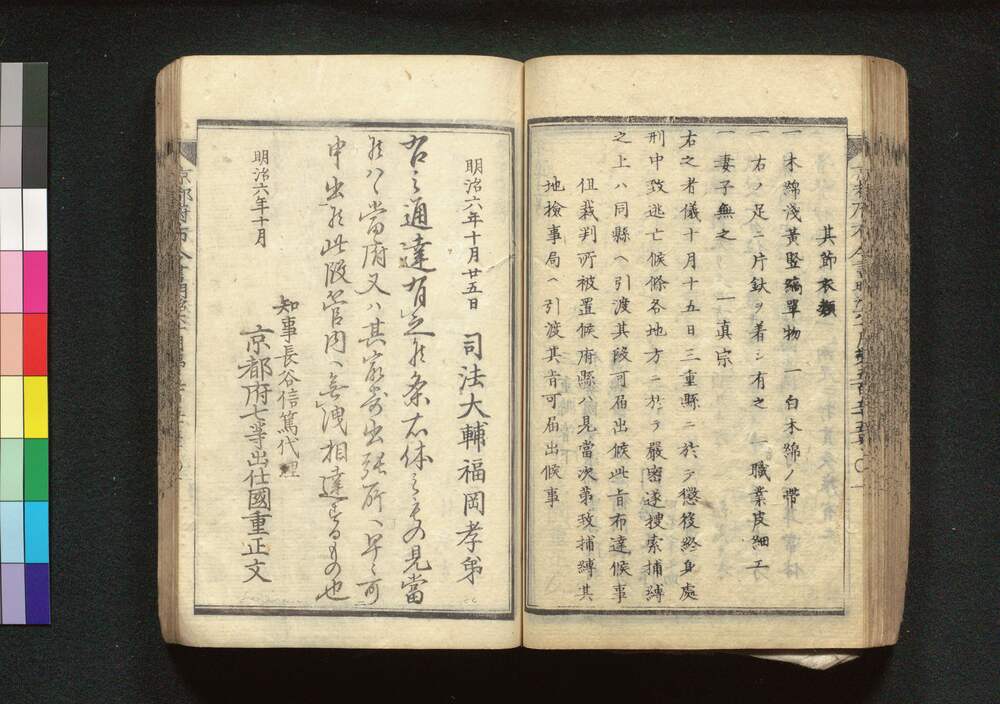 其節衣類
一 木綿淺黃竪縞單物 一 白木綿ノ帶
一 右ノ足ニ片釱ヲ着シ有之 一 職業皮細工
一 妻子無之 一 真宗
右之者儀十月十五日三重縣ニ於テ懲役終身處
刑中致逃亡候條各地方ニ於テ嚴密遂搜索捕縛
之上ハ同縣ヘ引渡其段可届出候此旨布達候事
但裁判所被置候府縣ハ見當次第致捕縛其
地檢事局ヘ引渡其旨可届出候事
明治六年十月廿五日 司法大輔福岡孝弟
右之通達有之候条右体之もの見當
候ハヽ當府又ハ其最寄出張所ヘ早々可
申出候此段管内ヘ無洩相達するもの也
明治六年十月
知事長谷信篤代理
京都府七等出仕國重正文